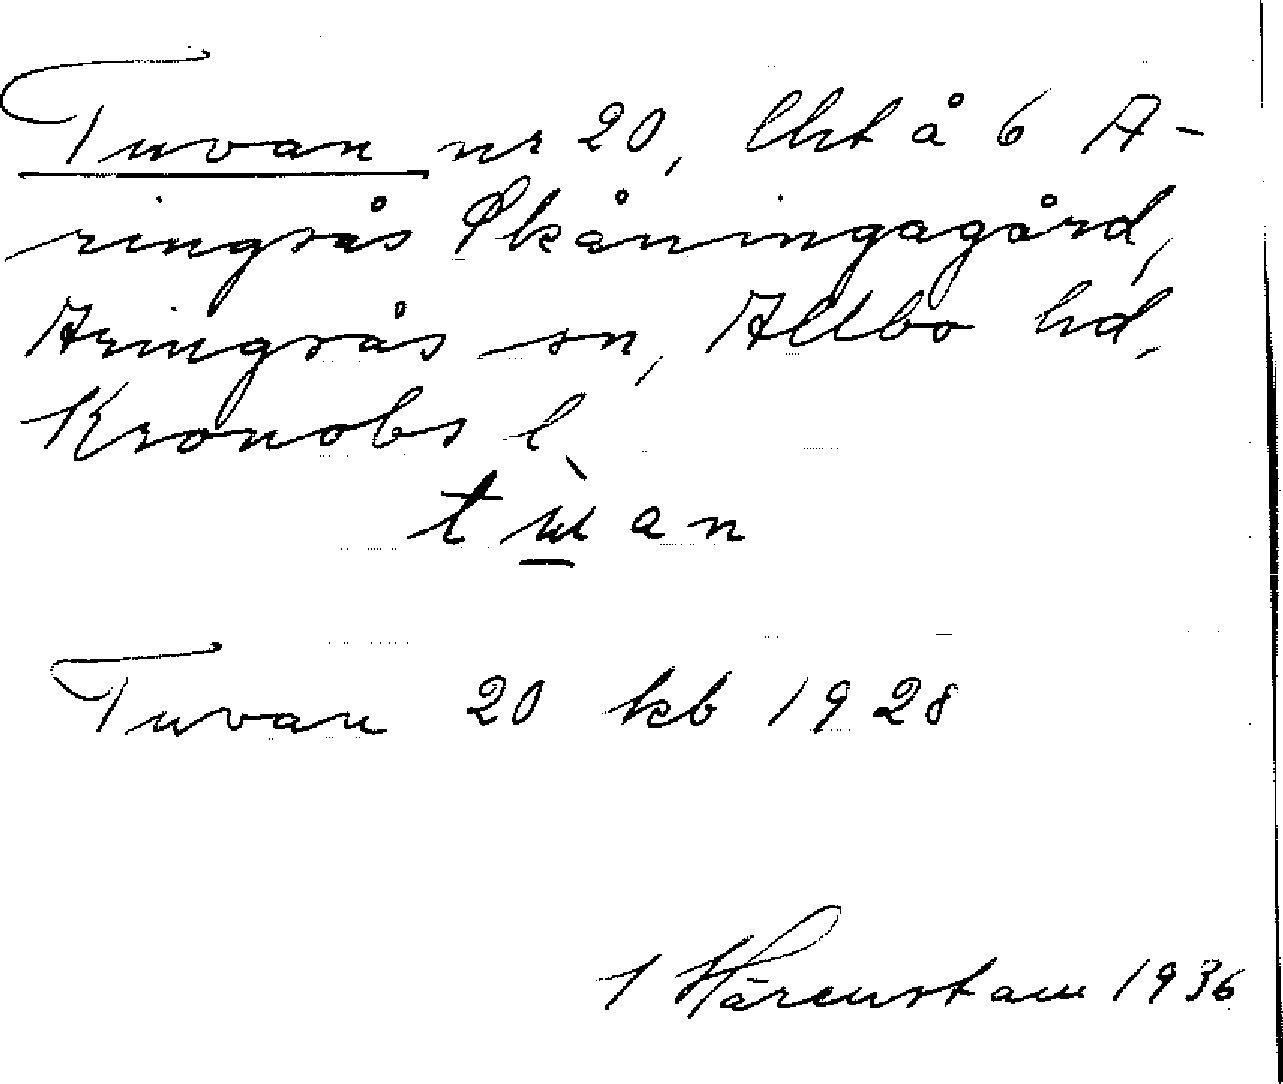 Tuvan nr 20, lht å 6 A-
ringsås Skåningagård,
Aringsås sn, Allbo hd,
Kronobs l.
tùan
Tuvan 20 kb 1928
I Härenstam 1936